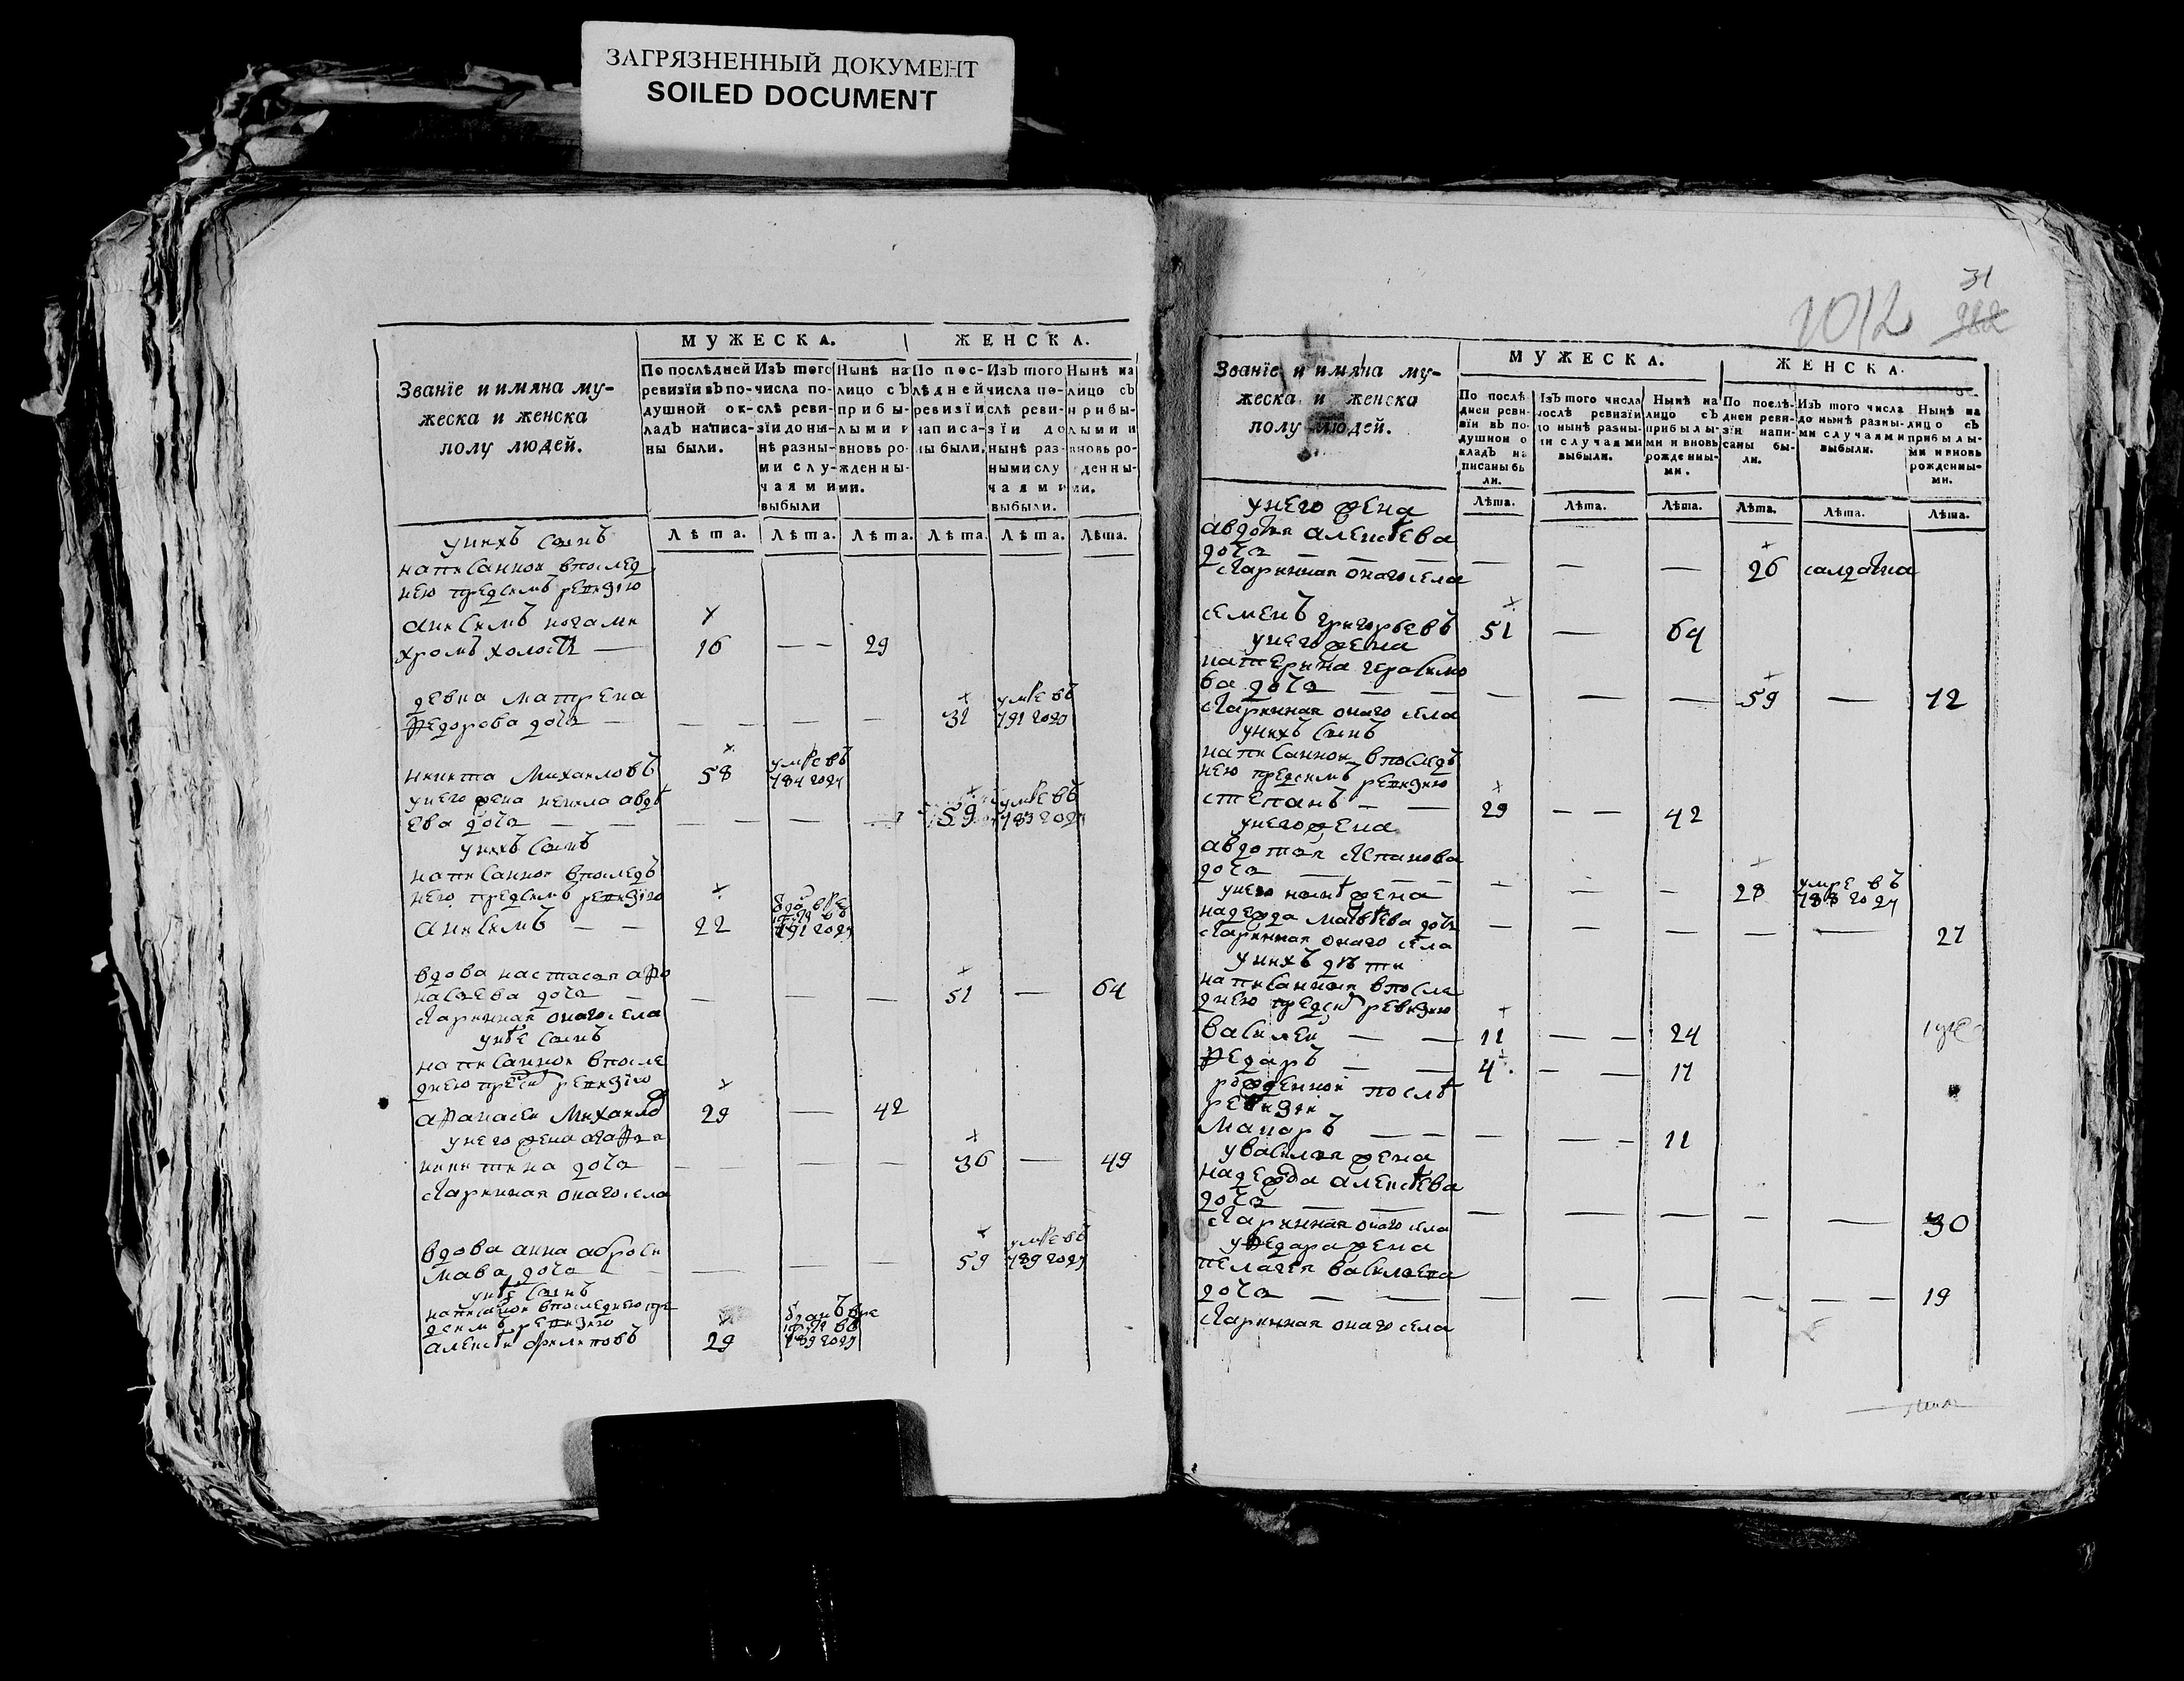 ЗАГРЯЗНЕННЫЙ ДОКУМЕНТ
SOILED DOCUMENT
Званїе и имяна му-
жеска и женска
полу людей.
МУЖЕСКА.
ЖЕНСКА.
По послѣдней ревизїи въ по-душной ок-ладъ написа-ны были.
Изъ того числа по-слѣ реви-зїи до ны-нѣ разны-ми слу-чаями выбыли
Нынѣ на лицо съ прибы-лыми и вновь ро-жденны-ми.
По пос-лѣдней ревизїи написа-ны были.
Изъ того числа по-слѣ реви-зїи до нынѣ раз-ными слу чаями выбыли.
Нынѣ на лицо съ прибы-лыми и вновь ро-жденны-ми.
Лѣта. Лѣта. Лѣта. Лѣта. Лѣта. Лѣта.
у нихъ сынъ
написанной в послед
нею пред симъ ревизїю
анисимъ ногами
хромъ холостъ — 16 — — 29
девка матрена
федорова дочь — — — — — 31 умре въ 791 году
никита михаиловъ 58 умре въ 784 году
у него жена некила авдѣ
ева дочь — — — — — 59 умре въ 783 году
у нихъ сынъ
написанной в последъ
нею пред симъ ревизїю
анисимъ — — 22 791 году
вдова настасья афо
насьева дочь — — — — 51 — 64
старинная оного села
у нѣе сынъ
написанной в после
днею пред сим ревизїю
афанасеи михаило 29 — 42
у него жена агафья
никитина дочь — — — 36 — 49
старинная оного села
вдова анна аброси
мава дочь — — — — 59 умре въ 789 году
у нѣе сынъ
написаной в последнею пре
д симъ ревизїю
алексѣи филиповъ 29 789 году
1012
31
Званїе и имяна му-
жеска и женска
полу людей.
МУЖЕСКА.
ЖЕНСКА.
По послѣ днеи реви-зїи въ по-душнои о кладъ на писаны бы ли.
Изъ того числа послѣ ревизїи до нынѣ разны-ми случаями выбыли.
Нынѣ на лицо съ прибылы-ми и вновь рожденны-ми.
По послѣ-днеи реви-зїи напи-саны бы-ли.
Изъ того числа до нынѣ разны-ми случаями выбыли.
Нынѣ на лицо съ прибылы-ми и вновь рожденны-ми.
Лѣта. Лѣта. Лѣта. Лѣта. Лѣта. Лѣта.
у него жена
авдотья алексѣева
дочь — — — — — 26 салдатка
старинная оного села
семенъ григорьевъ 51 — 64
у него жена
катерина герасимо
ва дочь — — — — — 59 — 72
старинная оного села
у нихъ сынъ
написанной в последъ
нею пред симъ ревизию
степанъ — — 29 — — 42
у него жена
авдотья степанова
дочь — — — — — 28 умре въ 788 году
у него ноне жена
надежда матвѣева дочь — — — — — 27
старинная оного села
у нихъ дѣти
написанныя в после
днею пред сим ревизию
василеи — — 11 — — 24
федаръ — — 4 — — 17
рожденной послѣ
ревизии
макаръ — — — — — 11
у василья жена
надежда алексѣева
дочь — — — — — — — 30
старинная оного села
у федара жена
пелагея васильева
дочь — — — — — — — — 19
старинная оного села